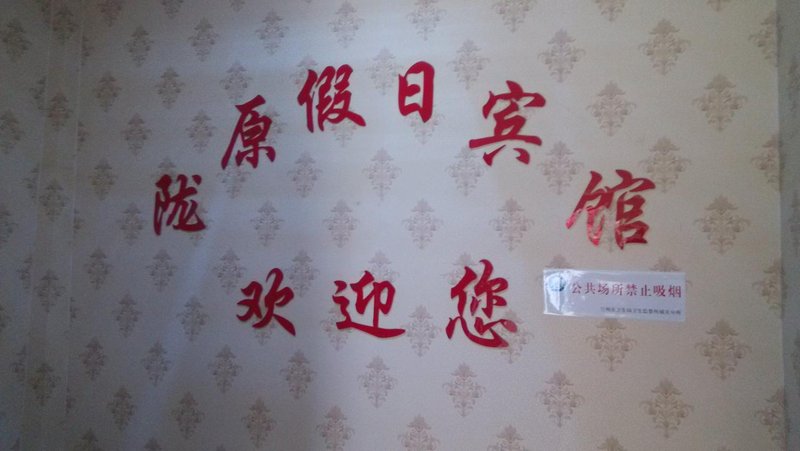 陇原假日宾馆
欢迎您
公共场所禁止吸烟